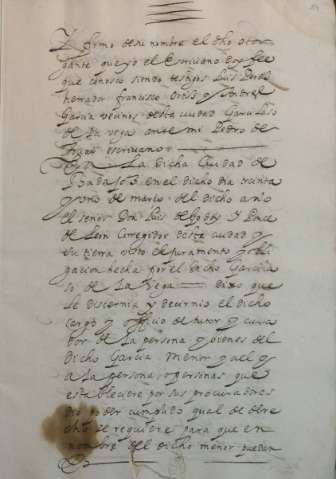 Y firmo de su nombre el dho otor
gante que yo el Escrivano doy fee
que conosco siendo testigos Luis Perez
herrador francisco Ortiz y Anbrel
Garcia vecinos desta ciudad Garcilaso
de la Vega ante mi Pedro de
escrivano
En La dicha Ciudad de
Badajos en el dicho dia treinta
y uno de março del dicho año
el señor Don Luis de Ponce
de Leon Corregidor desta ciudad y
su tierra visto el juramento y obli
gacion hecha por el dicho Garcila
so de la Vega dixo que
le discernia y decirnio el dicho
cargo y officio de tutor y cura
dor de La persona y bienes del
dicho Garcia menor y a el y
a La persona o personas que
establesciere por sus procuradores
dio poder cumplido qual de dere
cho se requiere para que en
nombre del dicho menor puedan